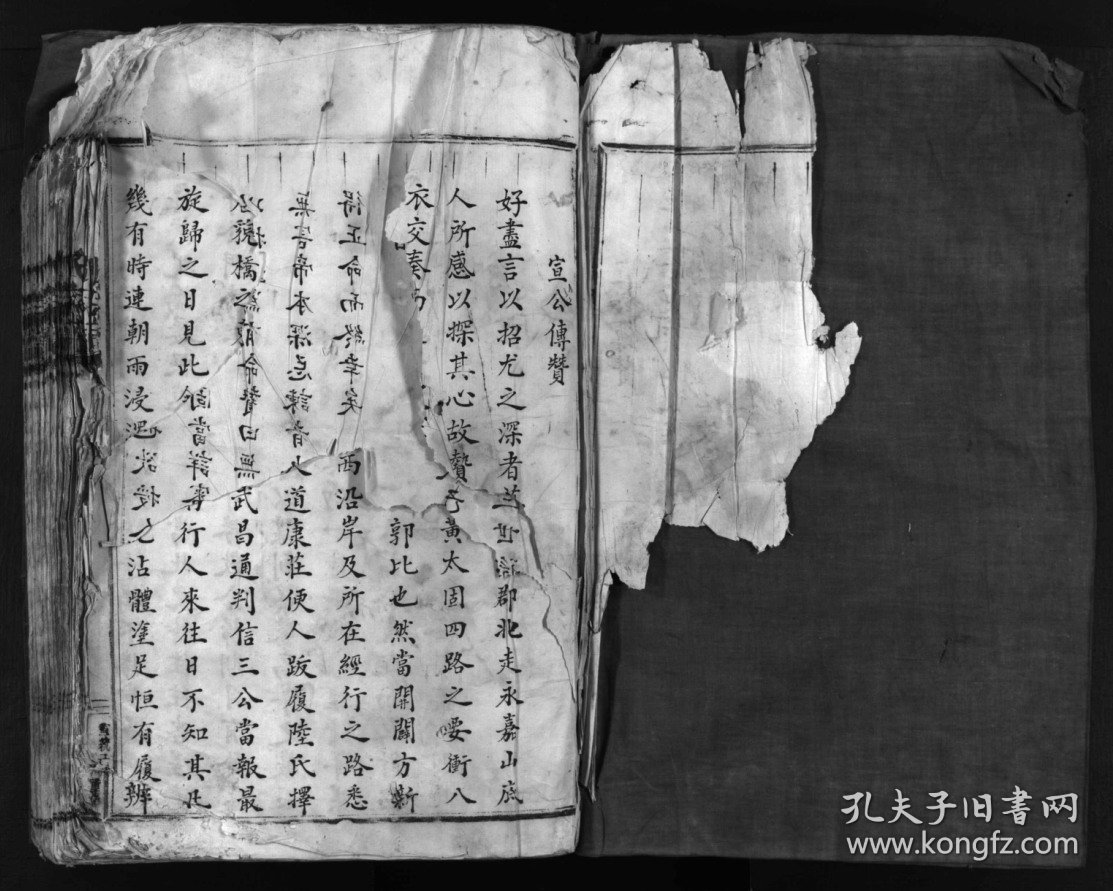 宣公傳贊
好盡言以招尤之深者 世 郡北走永嘉山
人所感以探其心故贊 黃太固四路之要衝八
衣交奏 郭比也然當開闢方新
得正命而終幸矣 西沿岸及所在經行之路悉
無害帝本深忌諫者人道康莊便人跋履陸氏擇
橋之 命贊曰無武昌通判信三公當報最
旋歸之日見此 當詳 行人來往日不知其凡
幾有時連朝雨浸 之沾體塗足恒有履
孔夫子旧書网
www.kongfz.com